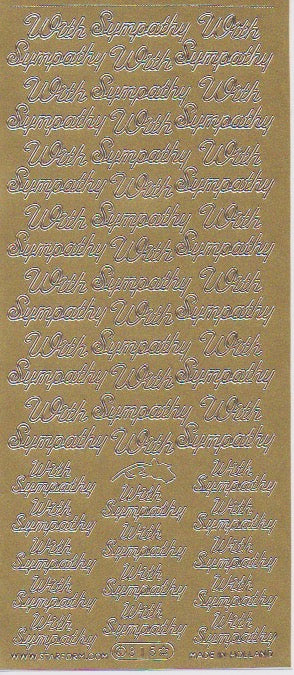 With Sympathy With
Sympathy With Sympathy
With Sympathy With
Sympathy With Sympathy
With Sympathy With
Sympathy With Sympathy
With Sympathy With
Sympathy With Sympathy
With Sympathy With
Sympathy With Sympathy
With Sympathy With
Sympathy With Sympathy
With Sympathy With
Sympathy With Sympathy
With With
Sympathy With Sympathy
With Sympathy With
Sympathy With Sympathy
With Sympathy With
Sympathy With Sympathy
With Sympathy With
Sympathy With Sympathy
With Sympathy With
Sympathy Sympathy
WWW.STARFORM.COM MADE IN HOLLAND